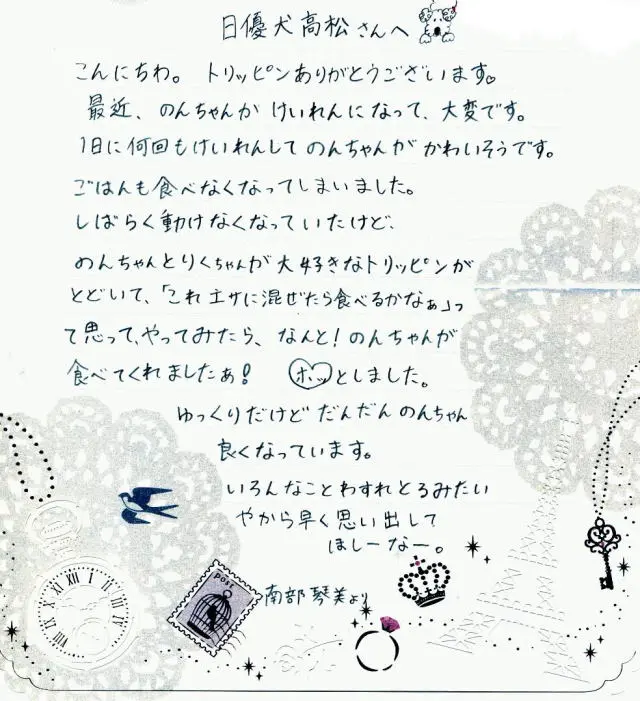 日優犬高松さんへ
こんにちわ。トリッピンありがとうございます。
最近、のんちゃんがけいれんになって、大変です。
1日に何回もけいれんしてのんちゃんがかわいそうです。
ごはんも食べなくなってしまいました。
しばらく動けなくなっていたけど、
のんちゃんとりくちゃんが大好きなトリッピンが
とどいて、「これエサに混ぜたら食べるかなぁ」っ
て思って、やってみたら、なんと!のんちゃんが
食べてくれましたぁ!ホッとしました。
ゆっくりだけどだんだんのんちゃん
良くなっています。
いろんなことわすれとるみたい
やから早く思い出して
ほしーなー。
南部琴美より
post